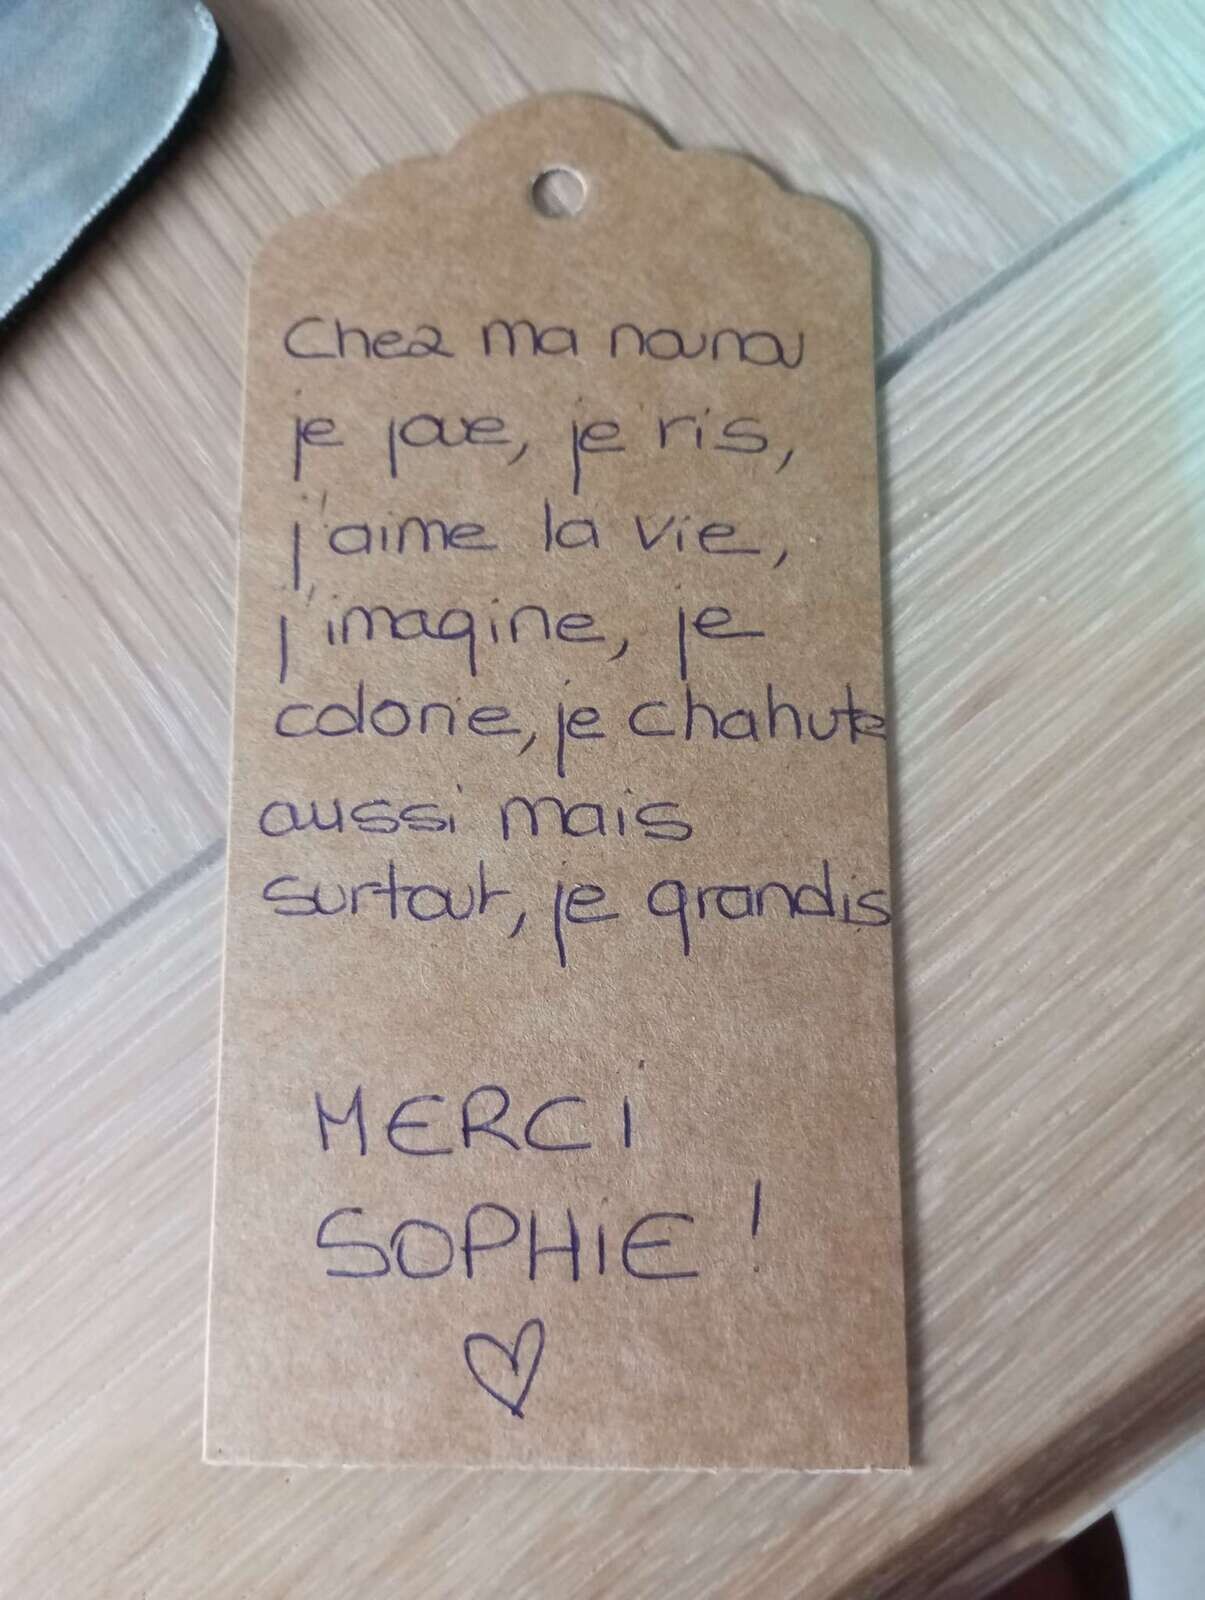 Chez ma nounou
je joue, je ris,
j'aime la vie,
j'imagine, je
colorie, je chahute
aussi mais
surtout, je grandis
MERCI
SOPHIE !